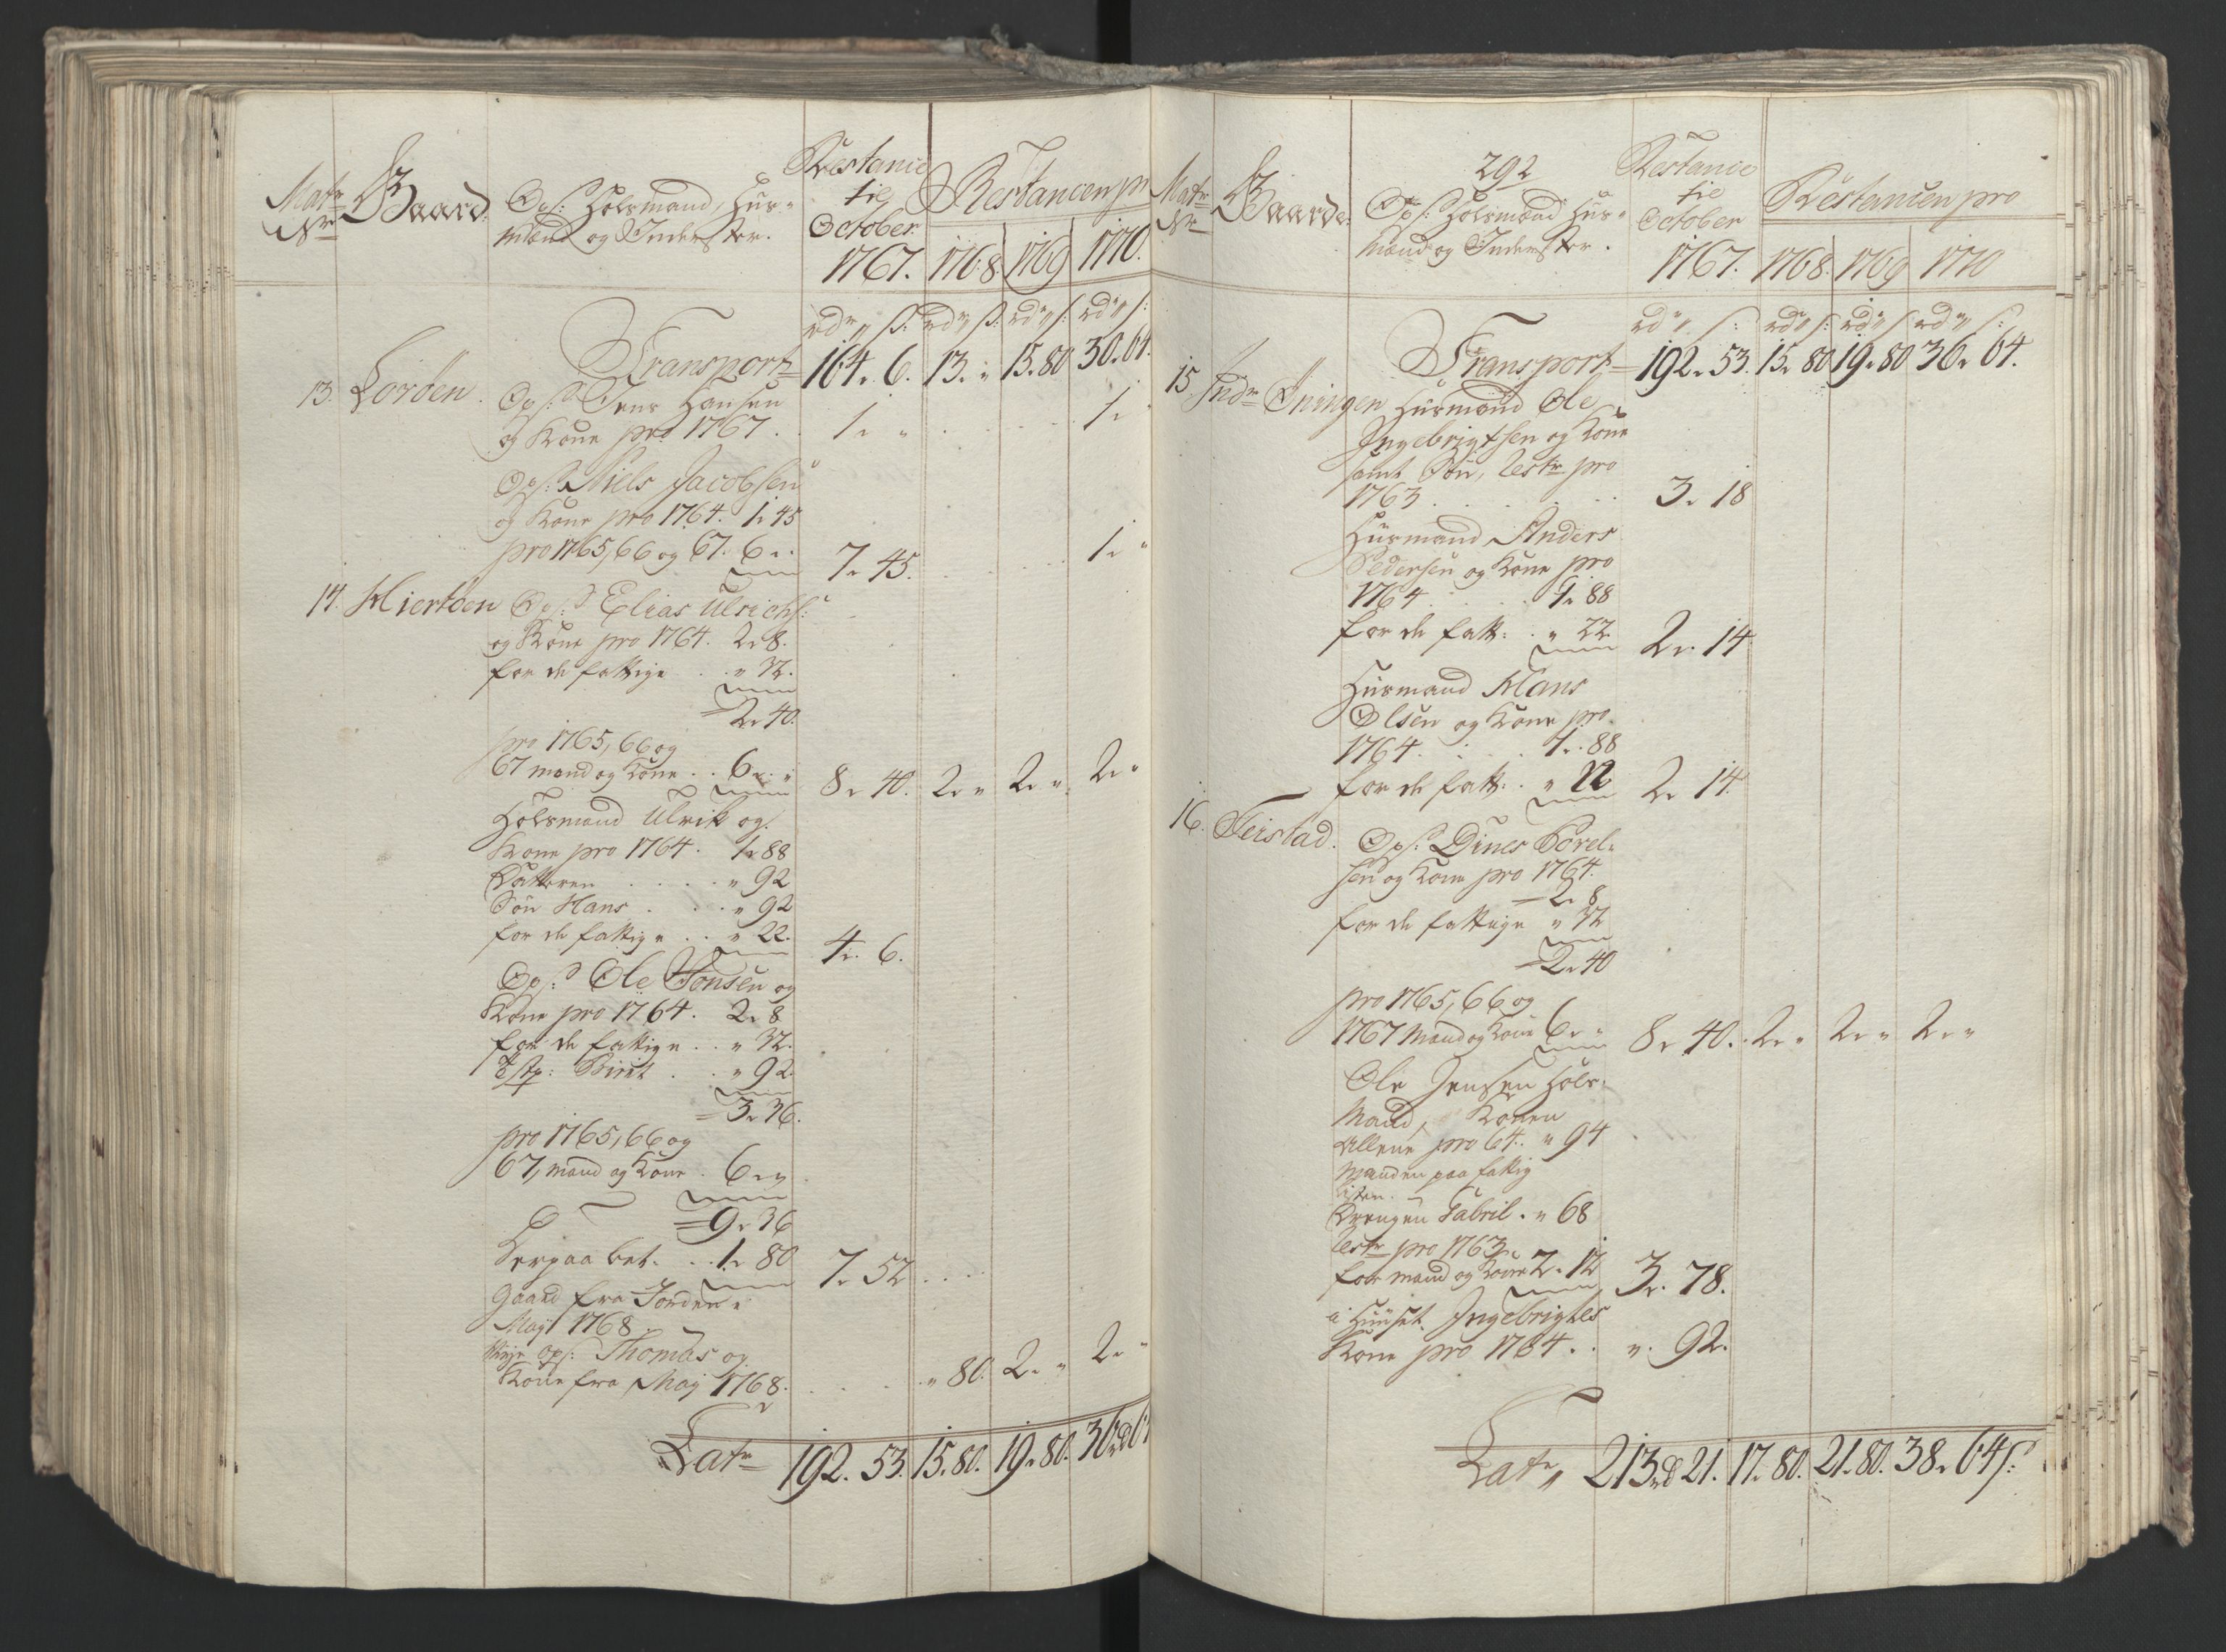 Matr Nr
Gaard
Ops: Holsmand, Hus-
mænd og Inderster.
Restance
til
October
1767.
Restancen pro
1768. 1769 1770.
rdr ß. rdr ß. rdr ß: rdr ß:
Transport 164. 6. 13. " 15. 80 30. 64.
13. Lorden. Ops. Jens Hansen
og Kone pro 1767. . 1. " . . . . 1. "
Ops. Niels Jacobsen
og Kone pro 1764. 1. 45
pro 1765, 66 og 67. 6. " 7. 45. . . . 1. "
14. Hiertøen Ops. Elias Ulrichs:
og Kone pro 1764. 2. 8.
for de fattige . . " 32.
= 2. 40.
pro 1765, 66 og
67 mand og Kone . . 6. " 8. 40. 2. " 2. " 2. "
Holsmand Ulrik og
Kone pro 1764. 1. 88
Datteren . . . . " 92
Søn Hans . . . " 92
for de fattige . . " 22. 4. 6.
Ops. Ole Tønsen og
Kone pro 1764. 2. 8
for de fattige . . " 32.
Biret . . " 92
= 3. 36.
pro 1765, 66 og
67, mand og Kone . 6. "
= 9. 36
Herpaa bet. . . 1. 80 7. 52 . . .
Gaard fra Jorden i
Maji 1768.
Nye ops: Thomas og
Kone fra Maj 1768. . . . " 80. 2. " 2. "
Latr 192. 53. 15. 80. 19. 80. 36 rd 64
292
Matr Nr
Gaarde.
Ops: Holsmænd Hus-
mænd og Inderster.
Restance
til
October
1767.
Restancen pro
1768. 1769 1770
rdr ß: rdr ß: rdr ß rdr ß:
Transport 192. 53. 15. 80 19. 80 36. 64.
15. Indr Øningen Husmand Ole
Ingebrigtsen og Kone
samt Søn, restr pro
1763 . . . . . . 3. 18
Husmand Anders
Pedersen og Kone pro
1764 . . . . 1. 88
for de fatt: . " 22 2. 14
Husmand Hans
Olsen og Kone pro
1764. . . . 1. 88
for de fatt. . " 22 2. 14
16. Feistad. Ops. Dines Torel-
sen og Kone pro 1764.
2. 8
for de fattige " 32
= 2. 40
pro 1765, 66 og
1767 Mand og Kone 6. " 8. 40. 2. " 2. " 2. "
Ole Jensen Hols-
mand, Konen
Allene pro 64. " 94
Manden paa fattig
listen.
Drengen Gabril. " 68
Restr pro 1763
for mand og Kone 2. 12 3. 78.
i Huuset. Ingebrigtes
Kone pro 1764. . ". 92.
Latr 213 rd 21. 17. 80. 21. 80. 38. 64 ß: